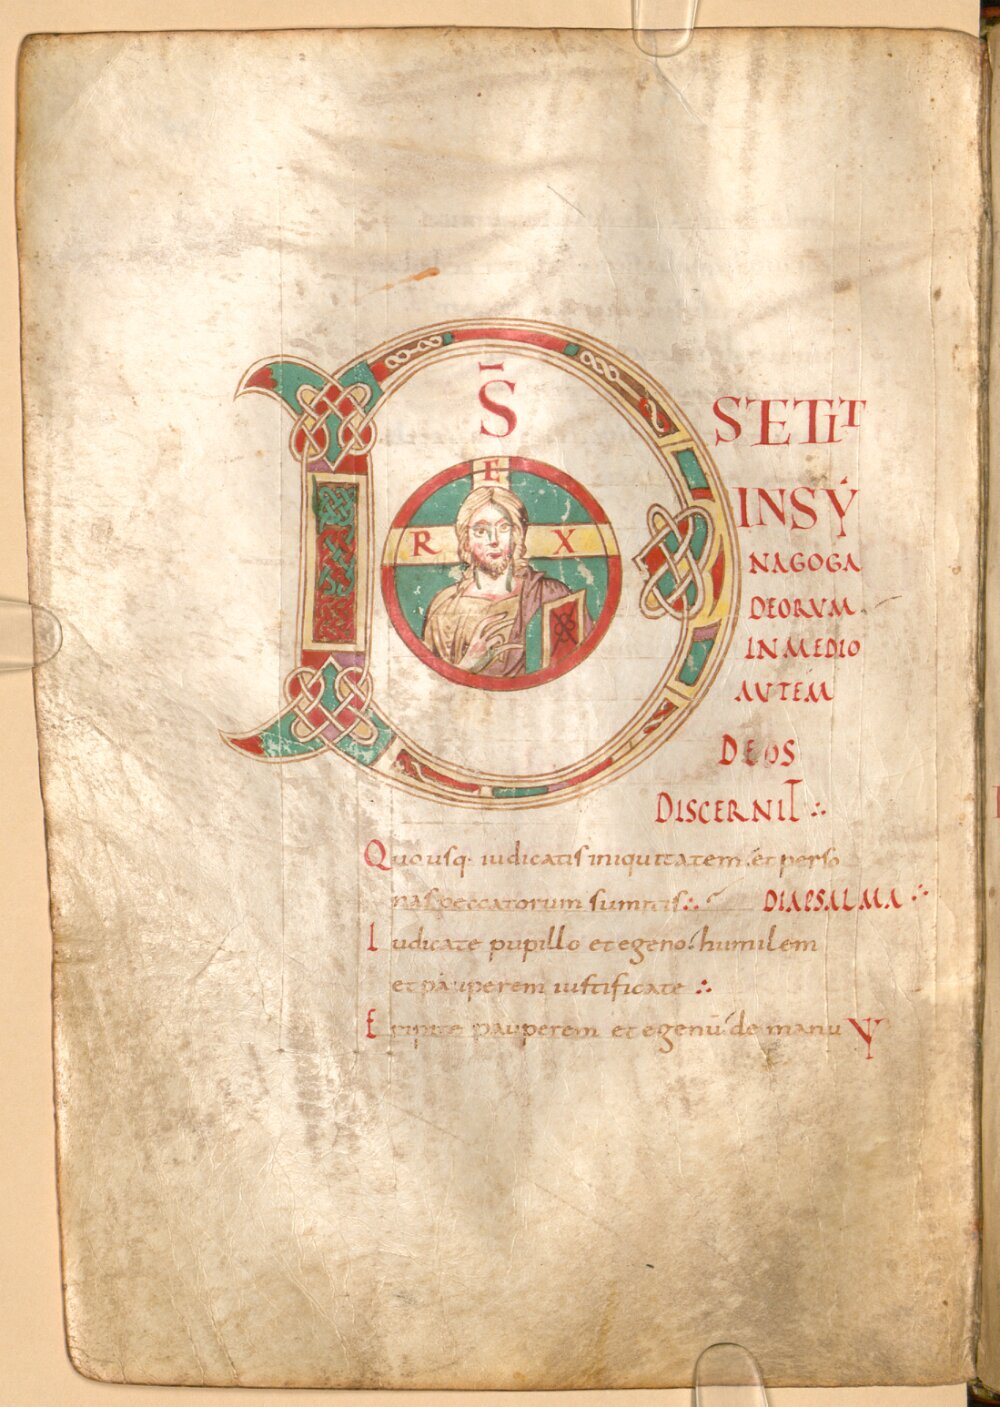 DS̄
REX
STETIT
INSY
NAGOGA
DEORVM
IN MEDIO
AVTEM
DEOS
DISCERNIT ∴
Quousq· iudicatis iniquitatem· et perso
nas peccatorum sumitis ∴ DIAPSALMA ∴
Iudicate pupillo et egeno· humilem
et pauperem iustificate ∴
Eripite pauperem et egenū de manu